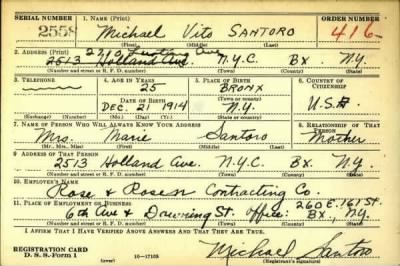 SERIAL NUMBER 1. NAME (Print) ORDER NUMBER
2558 Michael Vito SANTORO 416
(First) (Middle) (Last)
2. ADDRESS (Print)
2513 Holland Ave. N.Y.C. Bx N.Y.
(Number and street or R. F. D. number) (Town) (County) (State)
3. TELEPHONE 4. AGE IN YEARS 5. PLACE OF BIRTH 6. COUNTRY OF CITIZENSHIP
25 BRONX
DATE OF BIRTH (Town or county)
DEC. 21 1914 N.Y. U.S.A.
(Exchange) (Number) (Mo.) (Day) (Yr.) (State or country)
7. NAME OF PERSON WHO WILL ALWAYS KNOW YOUR ADDRESS 8. RELATIONSHIP OF THAT PERSON
Mrs. Marie Santoro Mother
(Mr., Mrs., Miss) (First) (Middle) (Last)
9. ADDRESS OF THAT PERSON
2513 Holland Ave. N.Y.C. Bx. N.Y.
(Number and street or R. F. D. number) (Town) (County) (State)
10. EMPLOYER'S NAME
Rose & Rosen Contracting Co.
11. PLACE OF EMPLOYMENT OR BUSINESS 260 E. 161 St.
6th Ave & Downing St. Office: Bx., N.Y.
(Number and street or R. F. D. number) (Town) (County) (State)
I AFFIRM THAT I HAVE VERIFIED ABOVE ANSWERS AND THAT THEY ARE TRUE.
REGISTRATION CARD
D. S. S. Form 1 (over) 16—17105 Michael Santoro
(Registrant's signature)